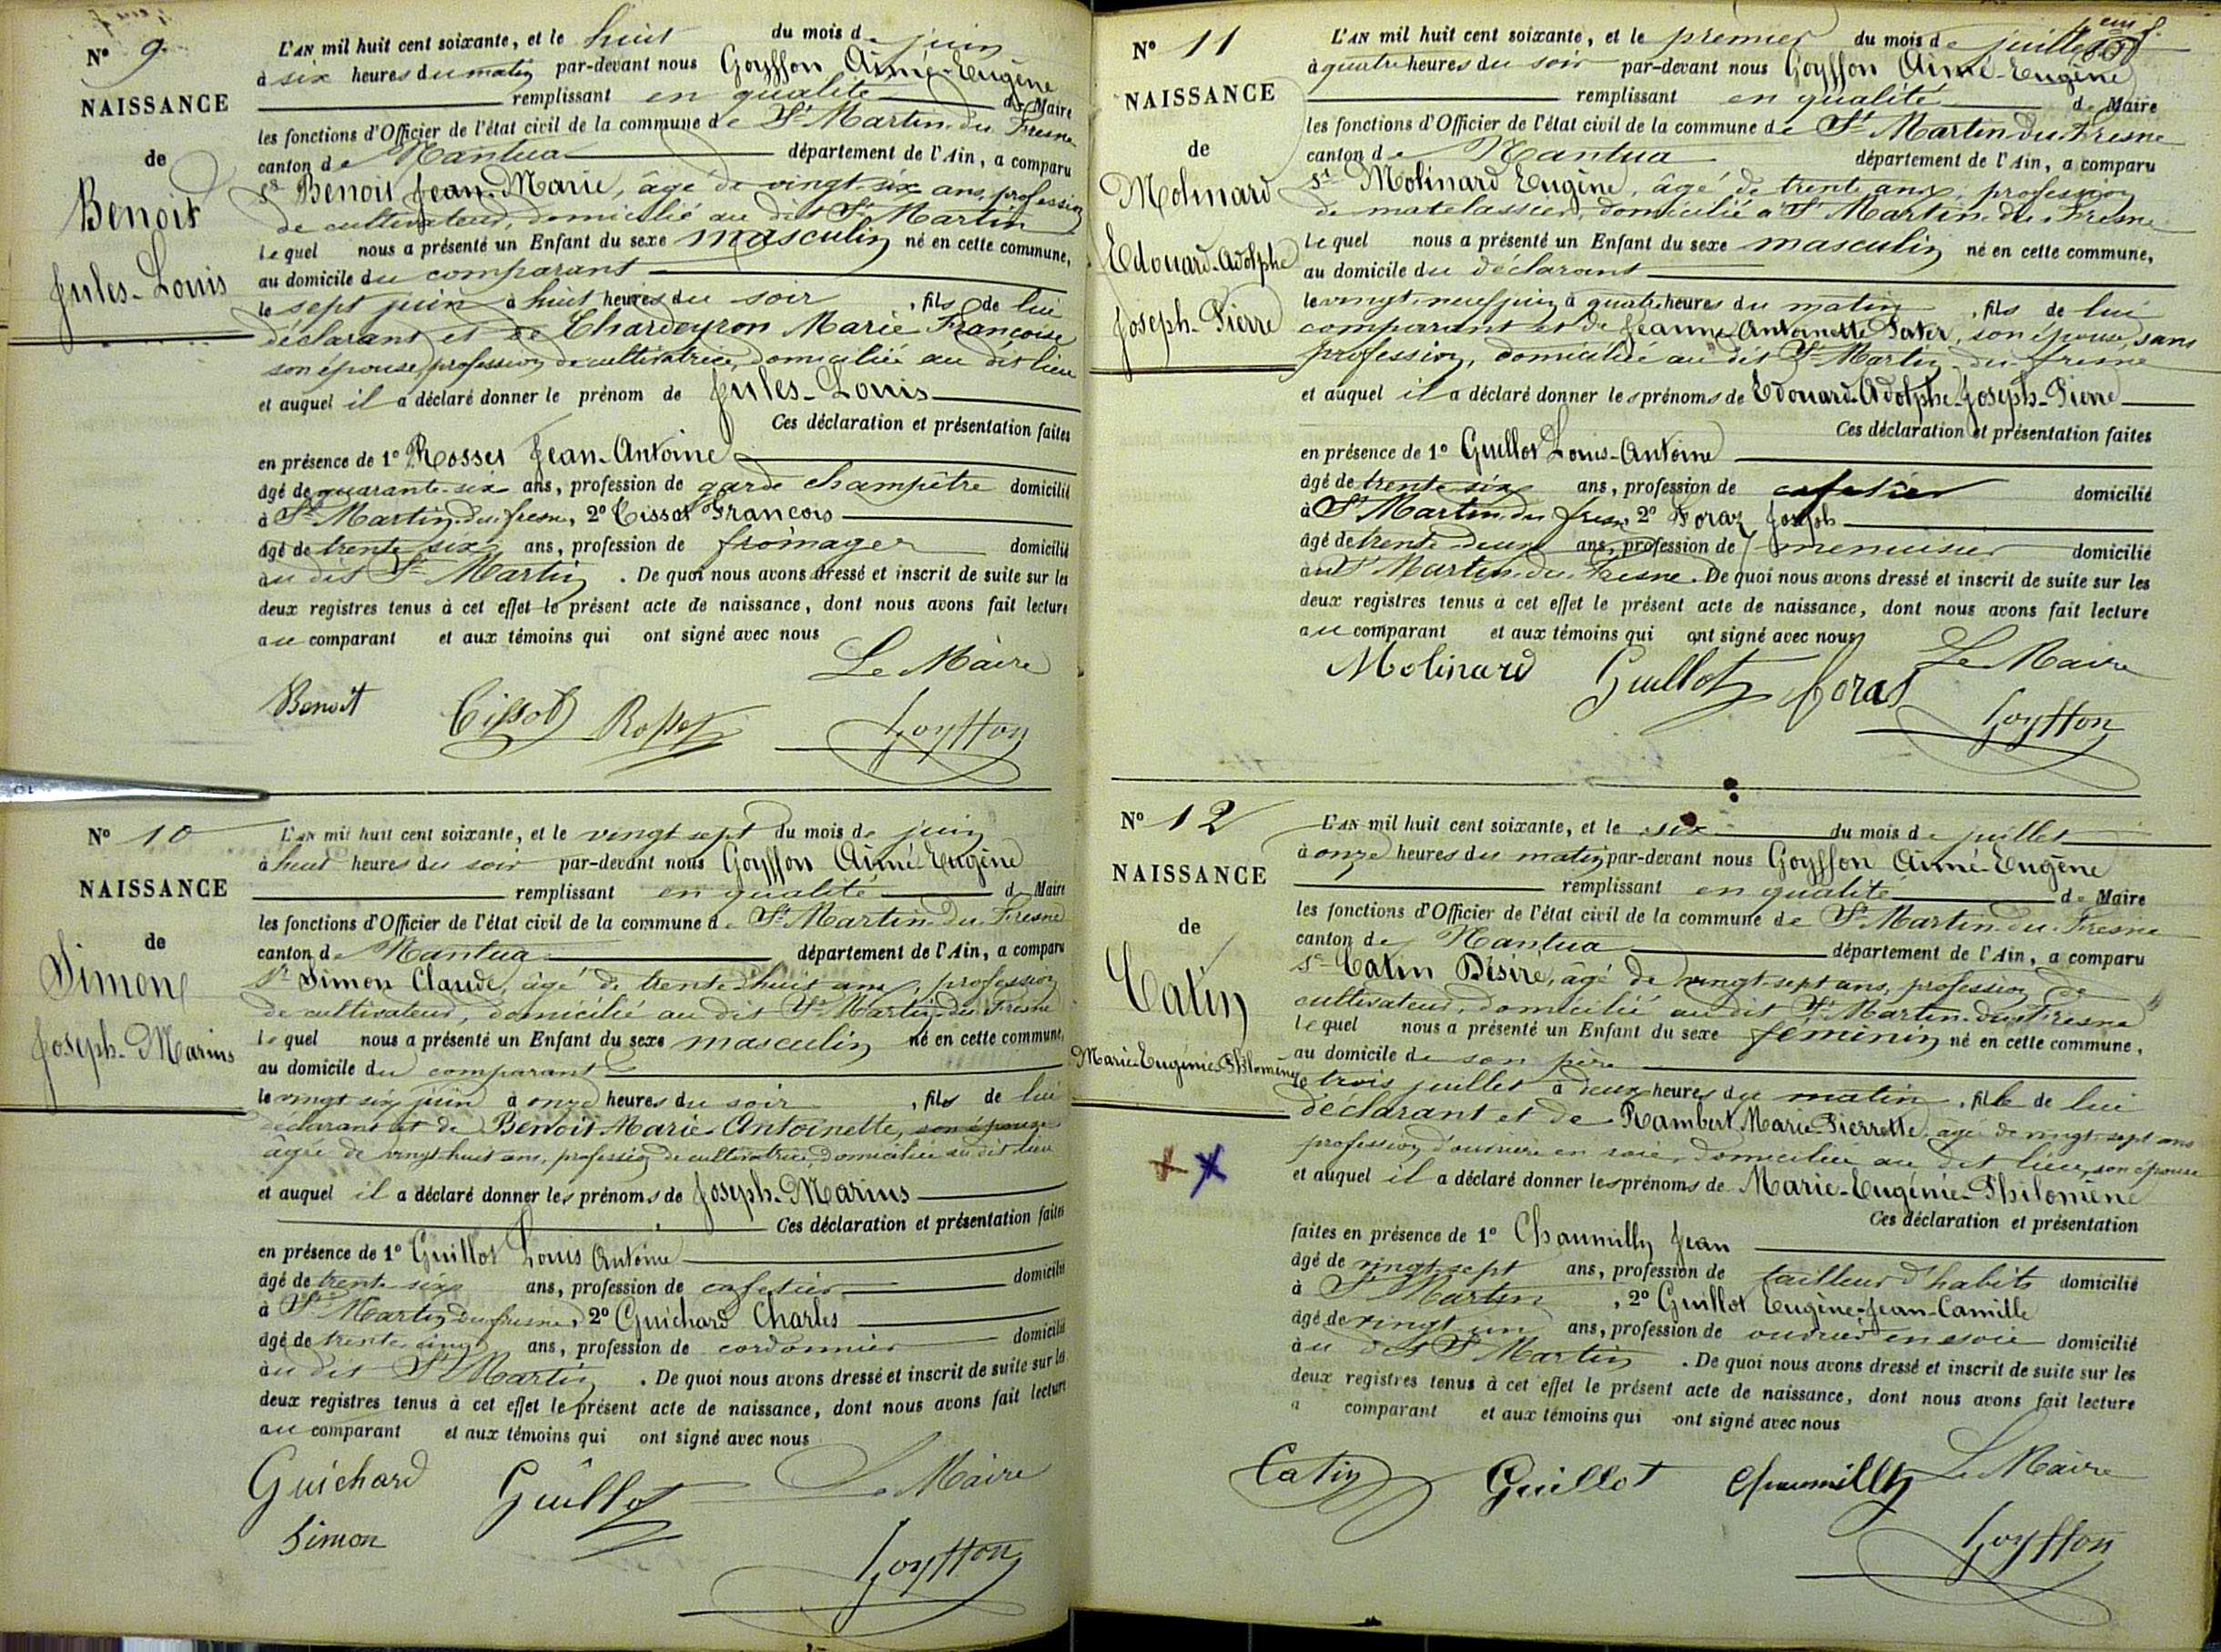 N° 9
NAISSANCE
de
Benoit
Jules-Louis
L'AN mil huit cent soixante, et le huit du mois de juin
à six heures du matin par-devant nous Goyffon Aimé-Eugène
remplissant en qualité de Maire
les fonctions d'Officier de l'état civil de la commune de St Martin-du Fresne
canton de Nantua département de l'Ain, a comparu
Sr Benoit Jean-Marie, âgé de vingt-six ans, profession
de cultivateur, domicilié au dit St Martin
lequel nous a présenté un Enfant du sexe masculin né en cette commune,
au domicile du comparant
le sept juin à huit heures du soir, fils de lui
déclarant et de Chardeyron Marie Françoise
son épouse, profession de cultivatrice, domiciliée au dit lieu
et auquel il a déclaré donner le prénom de Jules-Louis
Ces déclaration et présentation faites
en présence de 1° Rosset Jean-Antoine
âgé de quarante-six ans, profession de garde champêtre domicilié
à St Martin-du-fresne, 2° Tissot François
âgé de trente six ans, profession de fromager domicilié
au dit St Martin. De quoi nous avons dressé et inscrit de suite sur les
deux registres tenus à cet effet le présent acte de naissance, dont nous avons fait lecture
au comparant et aux témoins qui ont signé avec nous
Le Maire
Benoit Tissot Rosset Goyffon
N° 10
NAISSANCE
de
Simon
Joseph-Marius
L'AN mil huit cent soixante, et le vingt sept du mois de juin
à huit heures du soir par-devant nous Goyffon Aimé-Eugène
remplissant en qualité de Maire
les fonctions d'Officier de l'état civil de la commune de St Martin-du Fresne
canton de Nantua département de l'Ain, a comparu
Sr Simon Claude, âgé de trente huit ans, profession
de cultivateur, domicilié au dit St Martin-du Fresne
lequel nous a présenté un Enfant du sexe masculin né en cette commune,
au domicile du comparant
le vingt six juin à onze heures du soir, fils de lui
déclarant et de Benoit Marie Antoinette, son épouse
âgée de vingt-huit ans, profession de cultivatrice, domiciliée au dit lieu
et auquel il a déclaré donner les prénoms de Joseph-Marius
Ces déclaration et présentation faites
en présence de 1° Guillot Louis Antoine
âgé de trente six ans, profession de cafetier domicilié
à St Martin du fresne, 2° Guichard Charles
âgé de trente cinq ans, profession de cordonnier domicilié
au dit St Martin. De quoi nous avons dressé et inscrit de suite sur les
deux registres tenus à cet effet le présent acte de naissance, dont nous avons fait lecture
au comparant et aux témoins qui ont signé avec nous
Guichard Guillot Le Maire
Simon Goyffon
N° 11
NAISSANCE
de
Molinard
Edouard-Adolphe
Joseph-Pierre
L'AN mil huit cent soixante, et le premier du mois de juillet
à quatre heures du soir par-devant nous Goyffon Aimé-Eugène
remplissant en qualité de Maire
les fonctions d'Officier de l'état civil de la commune de St Martin-du-Fresne
canton de Nantua département de l'Ain, a comparu
Sr Molinard Eugène, âgé de trente ans, profession
de matelassier, domicilié à St Martin-du-Fresne
lequel nous a présenté un Enfant du sexe masculin né en cette commune,
au domicile du déclarant
le vingt-neuf juin à quatre heures du matin, fils de lui
comparant et de Jeanne Antoinette Pater, son épouse, sans
profession, domiciliée au dit St Martin-du-fresne
et auquel il a déclaré donner les prénoms de Edouard-Adolphe-Joseph-Pierre
Ces déclaration et présentation faites
en présence de 1° Guillot Louis-Antoine
âgé de trente six ans, profession de cafetier domicilié
à St Martin du fresne, 2° Foraz Joseph
âgé de trente deux ans, profession de menuisier domicilié
au St Martin-du-Fresne. De quoi nous avons dressé et inscrit de suite sur les
deux registres tenus à cet effet le présent acte de naissance, dont nous avons fait lecture
au comparant et aux témoins qui ont signé avec nous
Molinard Guillot Foraz Le Maire
Goyffon
N° 12
NAISSANCE
de
Catin
Marie-Eugénie-Philomène
L'AN mil huit cent soixante, et le six du mois de juillet
à onze heures du matin par-devant nous Goyffon Aimé-Eugène
remplissant en qualité de Maire
les fonctions d'Officier de l'état civil de la commune de St Martin-du-Fresne
canton de Nantua département de l'Ain, a comparu
Sr Catin Désiré, âgé de vingt-sept ans, profession de
cultivateur, domicilié au dit St Martin-du-Fresne
lequel nous a présenté un Enfant du sexe féminin né en cette commune,
au domicile de son père
le trois juillet à deux heures du matin, fille de lui
déclarant et de Rambert Marie-Pierrette, agée de vingt-sept ans
profession d'ouvrière en soie, domiciliée au dit lieu, son épouse
et auquel il a déclaré donner les prénoms de Marie-Eugénie-Philomène
Ces déclaration et présentation
faites en présence de 1° Chaumilly Jean
âgé de vingt-sept ans, profession de tailleur d'habits domicilié
à St Martin, 2° Guillot Eugène-Jean-Camille
âgé de vingt un ans, profession de ouvrier en soie domicilié
au dit St Martin. De quoi nous avons dressé et inscrit de suite sur les
deux registres tenus à cet effet le présent acte de naissance, dont nous avons fait lecture
a comparant et aux témoins qui ont signé avec nous
Catin Guillot Chaumilly Le Maire
Goyffon